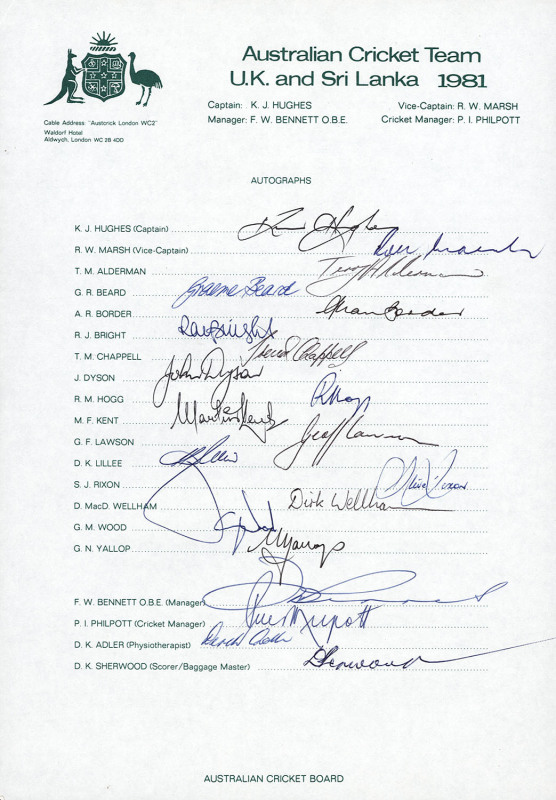 Australian Cricket Team
U.K. and Sri Lanka 1981
Captain: K. J. HUGHES Vice-Captain: R. W. MARSH
Manager: F. W. BENNETT O.B.E. Cricket Manager: P. I. PHILPOTT
Cable Address "Austcrick London WC2"
Waldorf Hotel
Aldwych, London WC 2B 4DD
AUTOGRAPHS
K. J. HUGHES (Captain)
R. W. MARSH (Vice-Captain)
T. M. ALDERMAN Terry Alderman
G. R. BEARD Graeme Beard
A. R. BORDER Allan Border
R. J. BRIGHT Ray Bright
T. M. CHAPPELL Trevor Chappell
J. DYSON John Dyson
R. M. HOGG R Hogg
M. F. KENT Martin Kent
G. F. LAWSON Geoff Lawson
D. K. LILLEE
S. J. RIXON
D. MacD. WELLHAM Dirk Wellham
G. M. WOOD
G. N. YALLOP
F. W. BENNETT O.B.E. (Manager)
P. I. PHILPOTT (Cricket Manager)
D. K. ADLER (Physiotherapist)
D. K. SHERWOOD (Scorer/Baggage Master)
AUSTRALIAN CRICKET BOARD